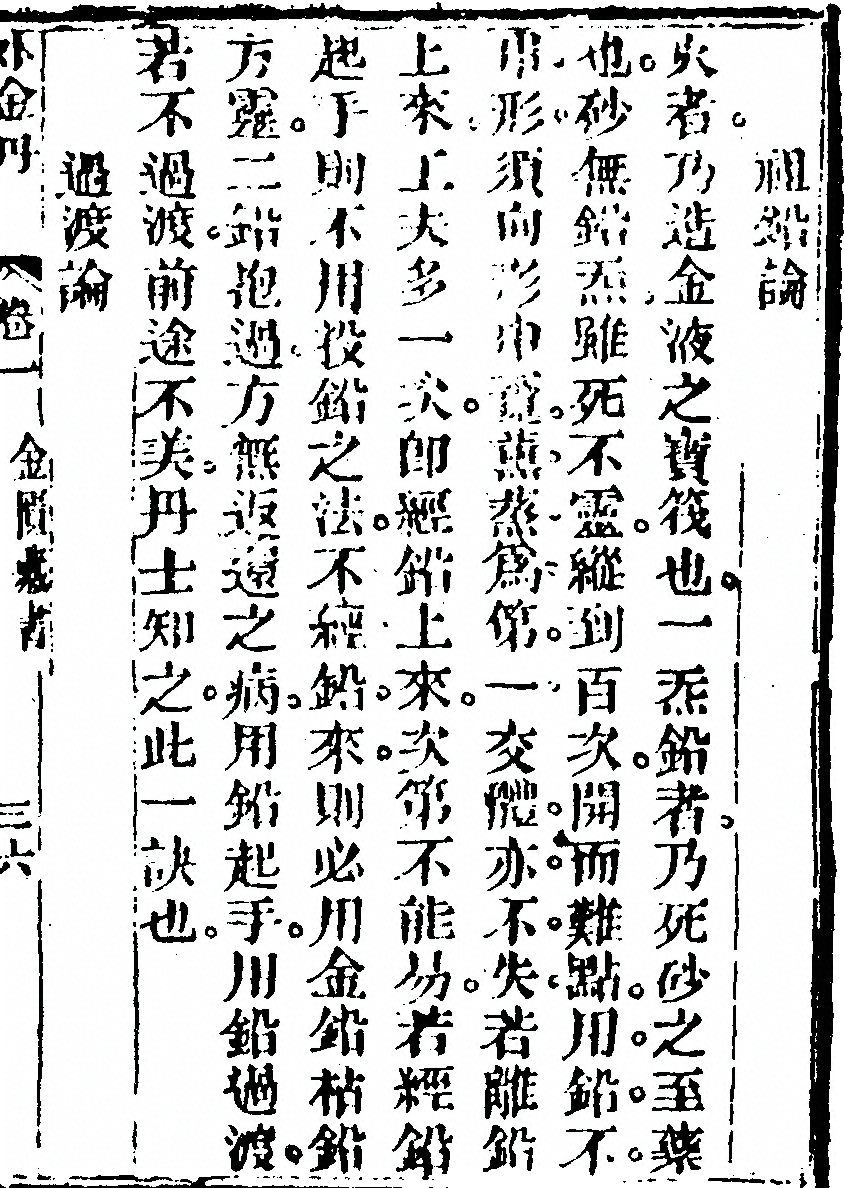 祖鉛論
火者乃造金液之寶筏也一炁鉛者乃死砂之至藥
也砂無鉛炁雖死不靈縱到百次開而難點用鉛不
串形須向形中竄薰蒸爲第一交體亦不失若離鉛
上來工夫多一次卽經鉛上來次第不能易若經鉛
起手則不用投鉛之法不經鉛來則必用金鉛枯鉛
方靈二鉛抱過方無返還之病用鉛起手用鉛過渡
若不過渡前途不美丹士知之此一訣也
過渡論
外金丹 卷一 金匱藏書 三六